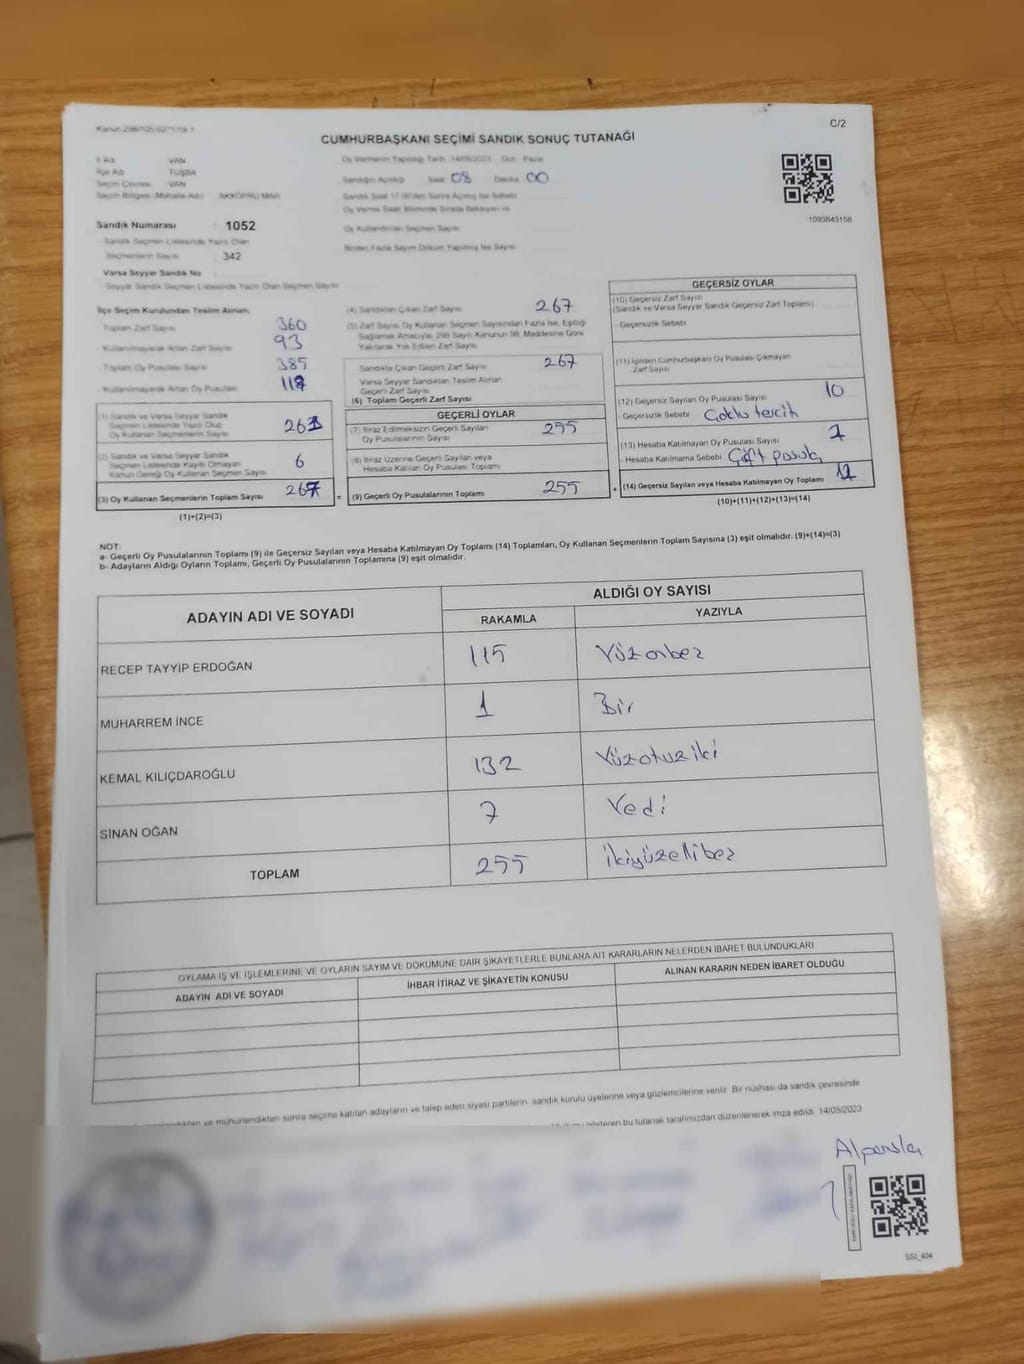 Kanun:298/105;6271/19-?
C/2
CUMHURBAŞKANI SEÇİMİ SANDIK SONUÇ TUTANAĞI
1093843158
İl Adı VAN
İlçe Adı TUŞBA
Seçim Çevresi VAN
Seçim Bölgesi (Mahalle Adı) AKKÖPRÜ MAH
Sandık Numarası : 1052
Sandık Seçmen Listesinde Yazılı Olan
Seçmenlerin Sayısı : 342
Varsa Seyyar Sandık No
Seyyar Sandık Seçmen Listesinde Yazılı Olan Seçmen Sayısı
Oy Vermenin Yapıldığı Tarih: 14/05/2023 Gün: Pazar
Sandığın Açıldığı Saat 08 Dakika 00
Sandık Saat 17.00'den Sonra Açılmış İse Sebebi
Oy Kullandırılan Seçmen Sayısı
Birden Fazla Sayım Döküm Yapılmış İse Sayısı
İlçe Seçim Kurulundan Teslim Alınan;
- Toplam Zarf Sayısı 360
- Kullanılmayarak Artan Zarf Sayısı 93
- Toplam Oy Pusulası Sayısı 385
- Kullanılmayarak Artan Oy Pusulası
(1) Sandık ve Varsa Seyyar Sandık
Seçmen Listesinde Yazılı Olup
Oy Kullanan Seçmenlerin Sayısı
(2) Sandık ve Varsa Seyyar Sandık
Seçmen Listesinde Kayıtlı Olmayan
Kanun Gereği Oy Kullanan Seçmen Sayısı 6
(3) Oy Kullanan Seçmenlerin Toplam Sayısı 267 =
(1)+(2)=(3)
(4) Sandıktan Çıkan Zarf Sayısı 267
(5) Zarf Sayısı Oy Kullanan Seçmen Sayısından Fazla ise, Eşitliği
Sağlamak Amacıyla, 298 Sayılı Kanunun 98. Maddesine Göre
Yakılarak Yok Edilen Zarf Sayısı
Sandıkta Çıkan Geçerli Zarf Sayısı 267
Varsa Seyyar Sandıktan Teslim Alınan
Geçerli Zarf Sayısı
(6) Toplam Geçerli Zarf Sayısı
GEÇERLİ OYLAR
(7) İtiraz Edilmeksizin Geçerli Sayılan
Oy Pusulalarının Sayısı 255
(8) İtiraz Üzerine Geçerli Sayılan veya
Hesaba Katılan Oy Pusulası Toplamı
(9) Geçerli Oy Pusulalarının Toplamı 255 +
GEÇERSİZ OYLAR
(10) Geçersiz Zarf Sayısı
(Sandık ve Varsa Seyyar Sandık Geçersiz Zarf Toplamı)
- Geçersizlik Sebebi
(11) İçinden Cumhurbaşkanı Oy Pusulası Çıkmayan
Zarf Sayısı
(12) Geçersiz Sayılan Oy Pusulası Sayısı 10
- Geçersizlik Sebebi Çoklu tercih
(13) Hesaba Katılmayan Oy Pusulası Sayısı
- Hesaba Katılmama Sebebi Çift pusula
(14) Geçersiz Sayılan veya Hesaba Katılmayan Oy Toplamı
(10)+(11)+(12)+(13)=(14)
NOT:
a- Geçerli Oy Pusulalarının Toplamı (9) ile Geçersiz Sayılan veya Hesaba Katılmayan Oy Toplamı (14) Toplamları, Oy Kullanan Seçmenlerin Toplam Sayısına (3) eşit olmalıdır. (9)+(14)=(3)
b- Adayların Aldığı Oyların Toplamı, Geçerli Oy Pusulalarının Toplamına (9) eşit olmalıdır.
ADAYIN ADI VE SOYADI ALDIĞI OY SAYISI
RAKAMLA YAZIYLA
RECEP TAYYİP ERDOĞAN 115 Yüzonbeş
MUHARREM İNCE 1 Bir
KEMAL KILIÇDAROĞLU 132 Yüzotuziki
SİNAN OĞAN 7 Yedi
TOPLAM 255 İkiyüzellibeş
OYLAMA İŞ VE İŞLEMLERİNE VE OYLARIN SAYIM VE DÖKÜMÜNE DAİR ŞİKAYETLERLE BUNLARA AİT KARARLARIN NELERDEN İBARET BULUNDUKLARI
ADAYIN ADI VE SOYADI İHBAR İTİRAZ VE ŞİKAYETİN KONUSU ALINAN KARARIN NEDEN İBARET OLDUĞU
ve mühürlendikten sonra seçime katılan adayların ve talep eden siyasi partilerin sandık kurulu üyelerine veya gözlemcilerine verilir. Bir nüshası da sandık çevresinde
gösteren bu tutanak tarafımızdan düzenlenerek imza edildi. 14/05/2023
SSI_404